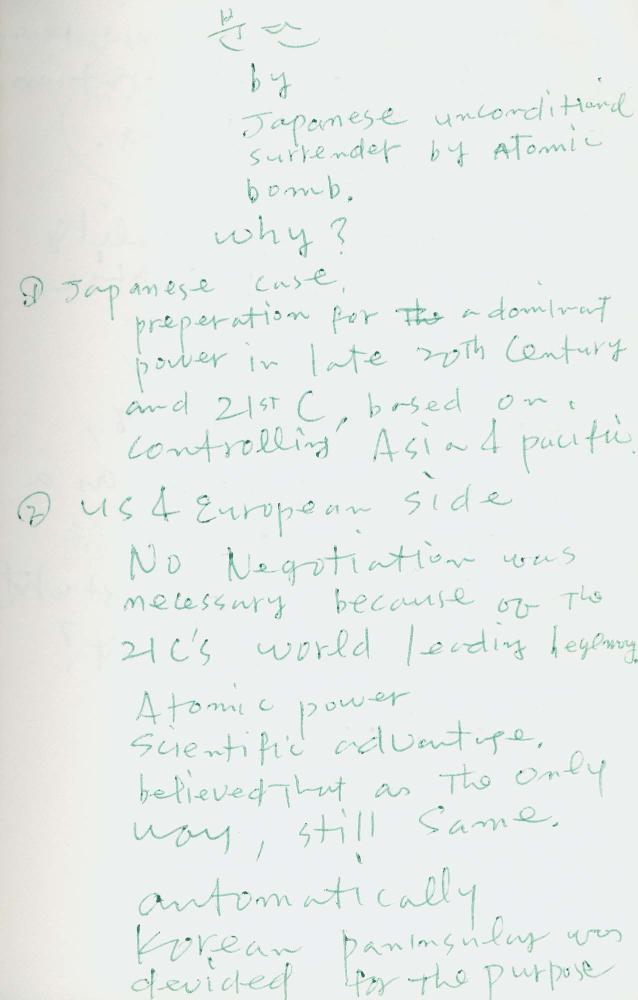 분단
by
Japanese unconditional
surrender by Atomic
bomb.
why?
① Japanese case.
preperation for the a dominat
power in late 20th Century
and 21st C, based on
controlling Asia & pacific.
② US & European side
No Negotiation was
necessary because of The
21C's world leading
Atomic power
Scientific advantage.
believed That as The only
way, still Same.
automatically
Korean paninsular was
devided for the purpose